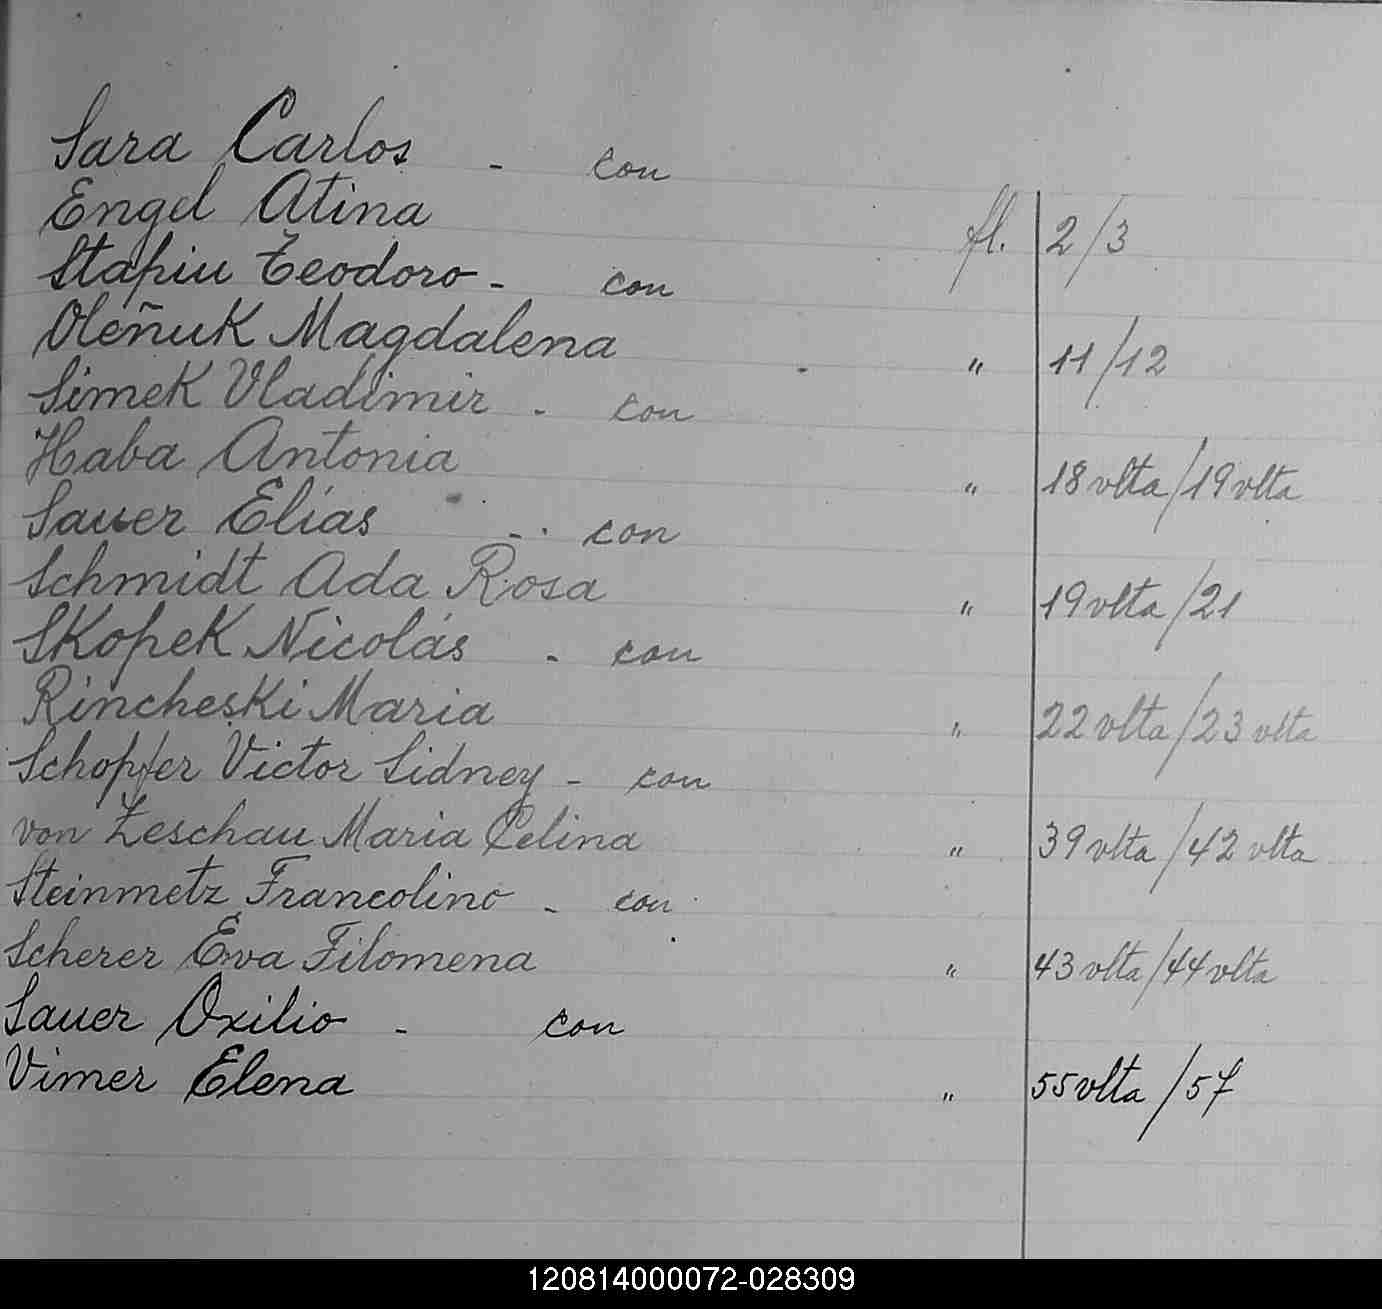 Sara Carlos - con
Engel Atina fl. 2/3
Stapiu Teodoro - con
Oleñuk Magdalena " 11/12
Simek Vladimir - con
Haba Antonia " 18 vlta/19 vlta
Sauer Elías - con
Schmidt Ada Rosa " 19 vlta/21
Skopek Nicolás - con
Rincheski Maria " 22 vlta/23 vlta
Schopfer Victor Sidney - con
von Zeschau Maria Celina " 39 vlta/42 vlta
Steinmetz Francolino - con
Scherer Eva Filomena " 43 vlta/44 vlta
Sauer Oxilio - con
Vimer Elena " 55 vlta/57
120814000072-028309